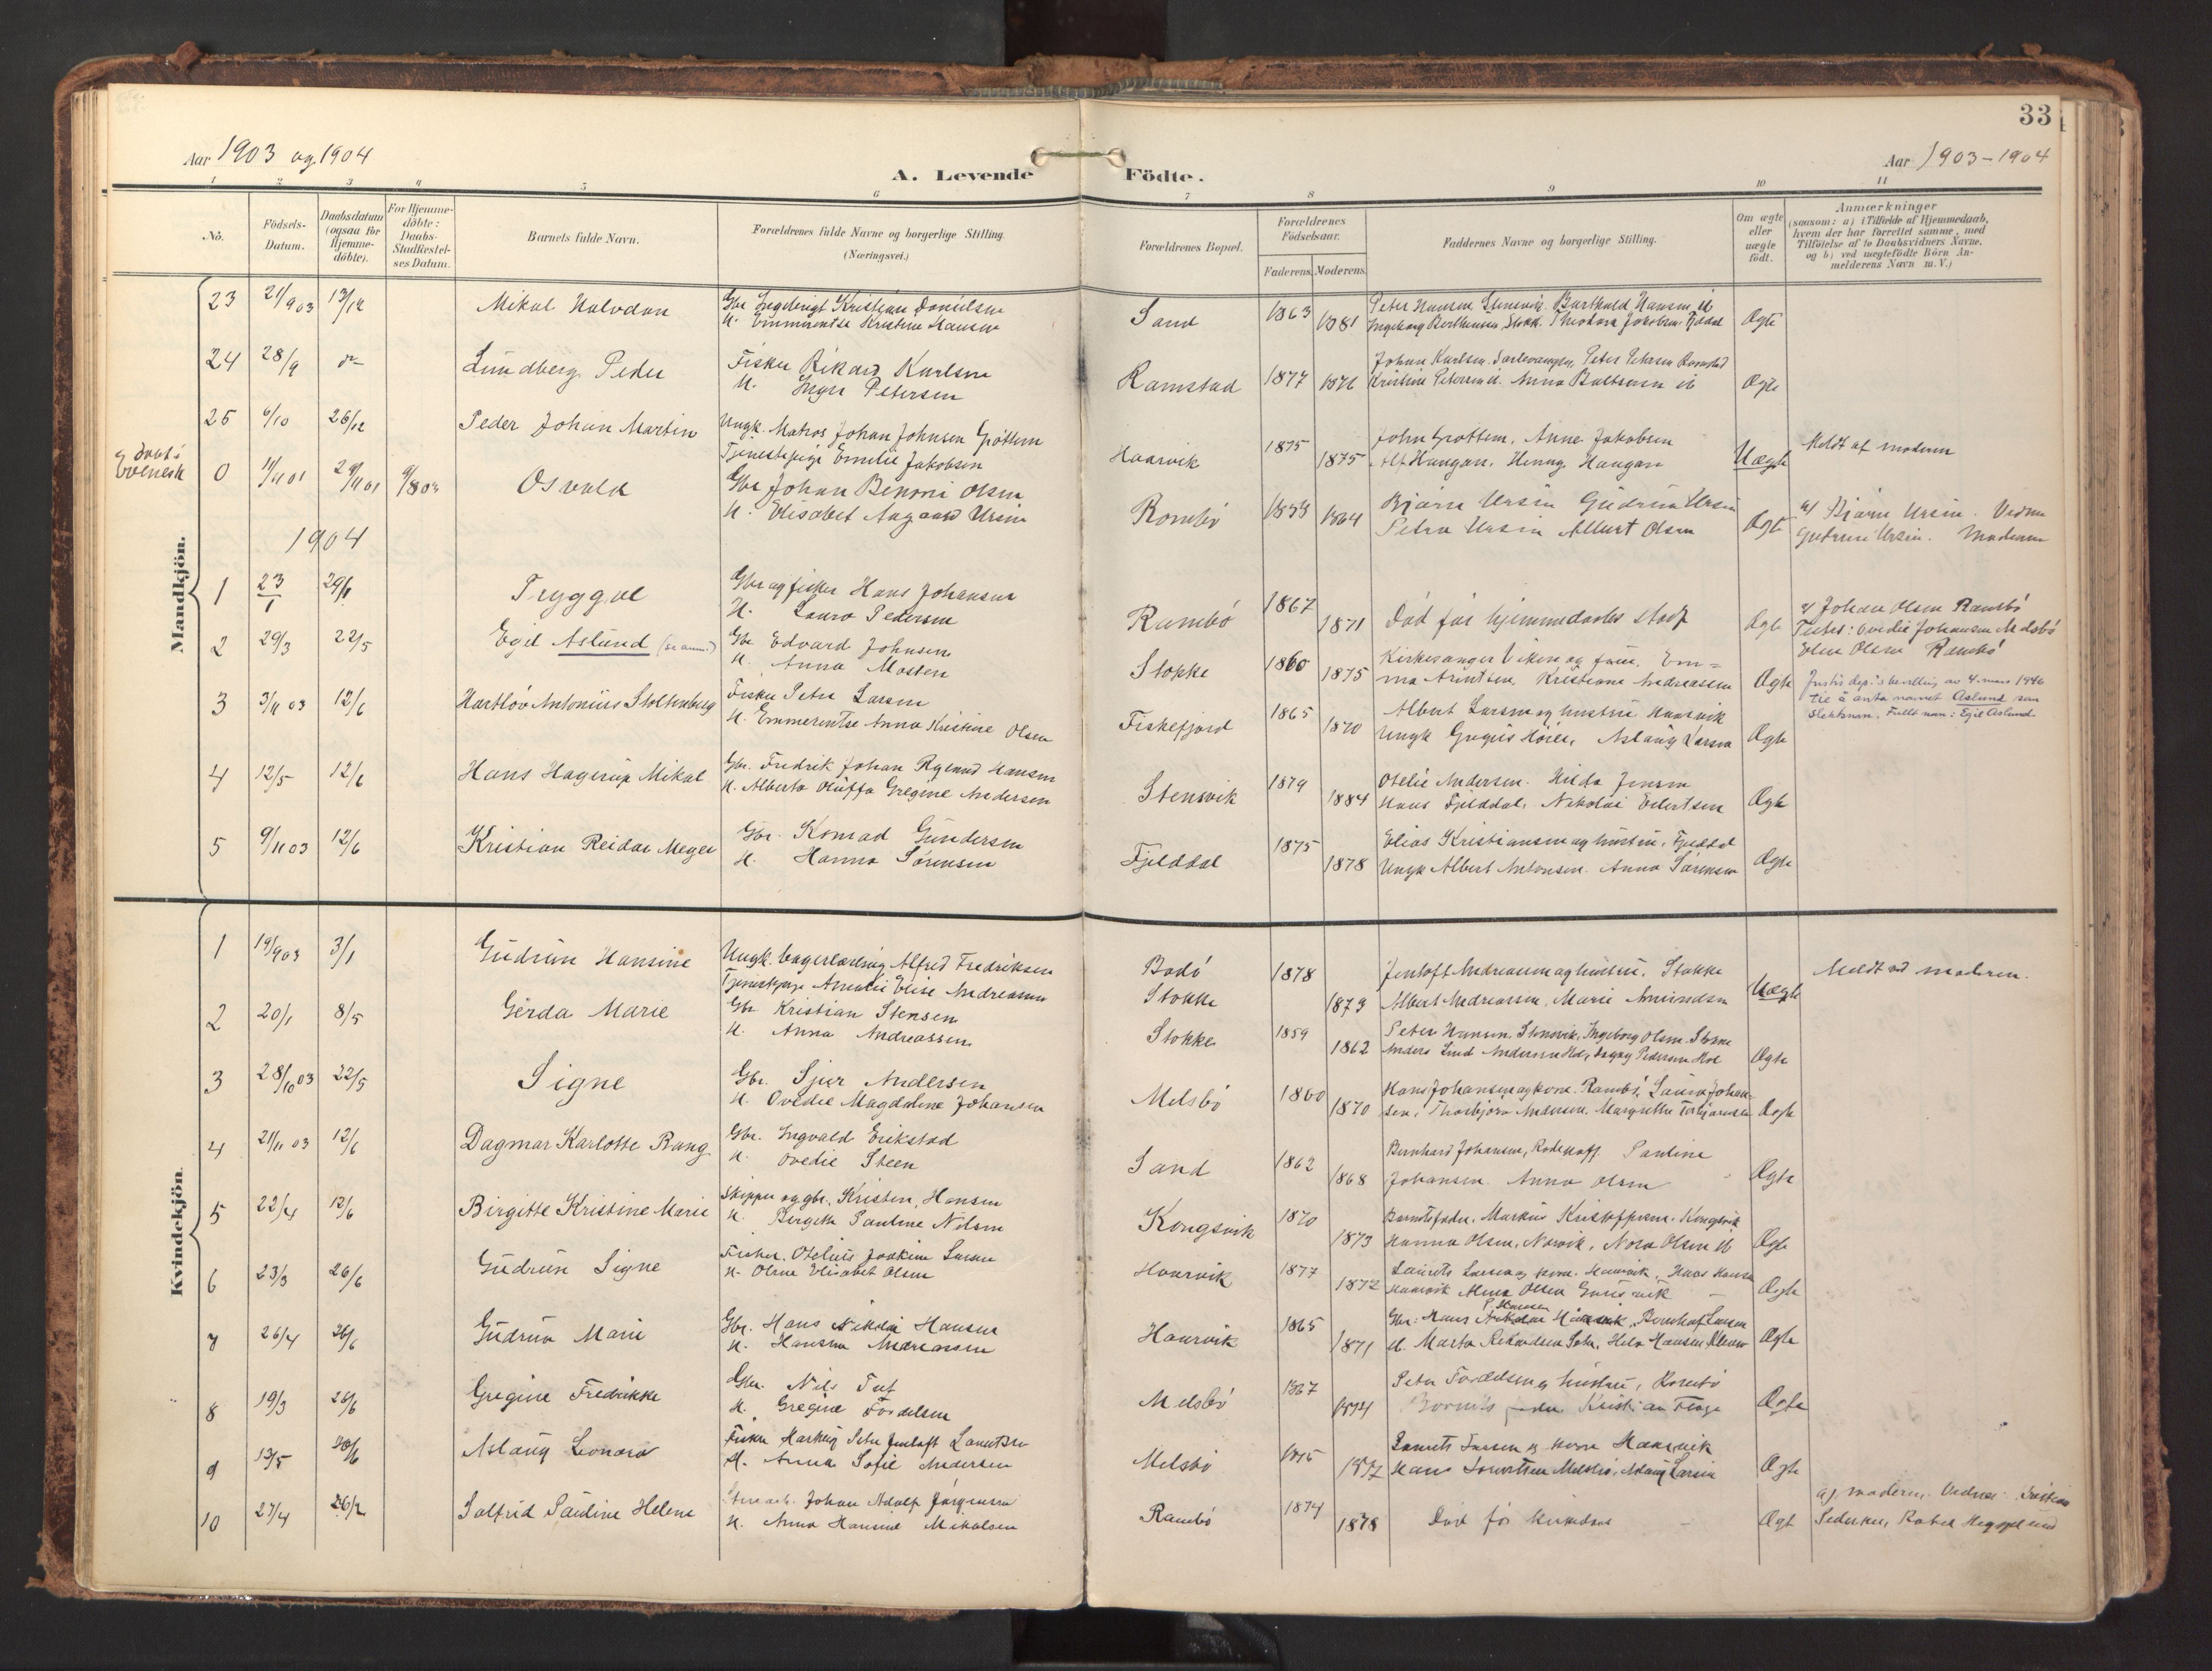 33
Aar 1903 og 1904
Aar 1903-1904
A. Levende Födte.
1 2 3 4 5 6 7 8 9 10 11
No.
Födsels-Datum.
Daabsdatum (ogsaa for Hjemme-döbte).
For Hjemme-döbte: Daabs-Stadfæstel-ses Datum.
Barnets fulde Navn.
Forældrenes fulde Navne og borgerlige Stilling.
(Næringsvei.)
Forældrenes Bopæl.
Forældrenes Födselsaar.
Faderens. Moderens.
Faddernes Navne og borgerlige Stilling.
Om ægte eller uægte födt.
Anmærkninger
(saasom: a) i Tilfælde af Hjemmedaab,
hvem der har forrettet samme, med
Tilföielse af to Daabsvidners Navne.
og b) ved uægtefödte Börn An-
melderens Navn m. V.)
Mandkjön.
23 21/9 03 13/12 Mikal Halvdan Gbr Ingebrigt Kristian Danielsen Sand 1863 Peter Hansen Stensvik. Barthold Hansen ib
H. Emmerentse Kristine Hansen 1881 Ingeborg Bertheusen Stokk. Theodora Jakobsen Fjeldal Ægte
24 28/9 Lundberg Peder Fisker Rikard Karlsen Johan Karlsen Peter Petersen Ramstad
H. Inger Petersen Ramstad 1877 1876 Kristine Petersen ib. Anna Baltsersen ib Ægte
25 6/10 26/12 Peder Johan Martin Ungk. Matros Johan Johnsen Grøttem Haarvik 1875 John Grøttem, Anne Jakobsen Meldt af moderen
Tjenestepige Emelie Jakobsen 1875 Alf Haugan, Henny Haugan Uægte
Døbt i Evenesk
0 1/11 01 29/11 01 9/8 03 Osvald Gbr Johan Benoni Olsen Rombø 1858 Bjarne Ursin Gudrun Ursin a/ Bjarne Ursin. Vidne
H. Elisabet Aagaard Ursin 1864 Petra Ursin Albert Olsen Ægte Gudrun Ursin. Moderen
1904
1 23/1 29/1 Tryggve Gbr og fisker Hans Johansen Rambø 1867 a/ Johan Olsen Rambø
H. Laura Pedersen 1871 Død før hjemmedaabs stadf Ægte Testes: Ovedie Johansen Melsbø
Eline Olsen Rambø
2 29/3 22/5 Egil Aslund (se anm.) Gbr Edvard Johnsen Stokke 1860 Kirkesanger Viken og frue. Em-
H. Anna Mosten 1875 ma Arntsen, Kristianne Andreassen Ægte Justis dep.'s bevilling av 4. mars 1946
til å anta navnet Aslund som
slektsnavn. Fullt navn: Egil Aslund.
3 3/11 03 12/6 Hartløv Antonius Stoltenberg Fisker Peter Larsen Fiskefjord 1865 Albert Larsen og hustru Haarvik
H. Emmerentse Anna Kristine Olsen 1870 Ungk Gregus Høier, Aslaug Larsen Ægte
4 12/5 12/6 Hans Hagerup Mikal Gbr. Fredrik Johan Rynnd Hansen Stensvik 1879 Otelie Andersen. Hilda Jensen
H. Alberta Oluffa Gregine Andersen 1884 Hans Fjelddal, Nikolai Eilertsen Ægte
5 9/11 03 12/6 Kristian Reidar Meyer Gbr. Konrad Gundersen Fjelddal 1875 Elias Kristiansen og hustru, Fjelddal
H. Hanna Sørensen 1878 Ungk Albert Antonsen. Anna Sørensen Ægte
Kvindekjön.
1 19/9 03 3/1 Gudrun Hansine Ungk. bagerlærling Alfred Fredriksen Bodø 1878 Jentoft Andreassen og hustru. Stokke Meldt ved moderen.
Tjenestepige Amalie Elise Andreassen Stokke 1873 Albert Andreassen, Marie Amundsen Uægte
2 20/1 8/5 Gerda Marie Gbr Kristian Stensen Stokke 1859 Peter Hansen Stensvik, Ingeborg Olsen Stokke
H. Anna Andreassen 1862 Anders Lind Andersen Hol, Dagny Pedersen Hol Ægte
3 28/10 03 22/5 Signe Gbr. Sjur Andersen Melsbø 1860 Hans Johansen og kone. Rambø, Laura Johan-
H. Ovedie Magdalene Johansen 1870 sen, Thorbjørn Andersen. Margrethe Torbjørnsen Ægte
4 21/11 03 12/6 Dagmar Karlotte Bang Gbr. Ingvald Erikstad Sand 1862 Bernhard Johansen, Pauline
H. Ovedie Steen 1868 Johansen. Anna Olsen Ægte
5 22/4 12/6 Birgitte Kristine Marie Skipper og gbr. Kristen Hansen Kongsvik 1870 Barnets fader, Markus Kristoffersen. Kongsvik
H. Birgitte Pauline Nilsen 1873 Hanna Olsen, Narvik, Nora Olsen ib Ægte
6 23/3 26/6 Gudrun Signe Fisker. Otelius Joakim Larsen Haarvik 1877 Laurits Larsen og kone. Haarvik, Hans Hansen
H. Oline Elisabet Olsen 1872 Haarvik Alma Olsen Ægte
7 26/4 26/6 Gudrun Marie Gbr. Hans Nikolai Hansen Haarvik 1865 Gbr. Hans P. Hansen Haarvik, Larsen
H. Hansine Andreassen 1871 ib. Marta Rikardsen Hansen Ægte
8 19/3 26/6 Gregine Fredrikke Gbr. Nils Tuf Melsbø 1867 Peter Toraldsen og hustru, Rombø
H. Gregine Toraldsen 1874 Barnets fader Kristian Ægte
9 13/5 Aslaug Leonora Fisker Peter Jentoft Lauritsen Melsbø 1875 Laurits Larsen og kone Haarvik
H. Anna Sofie Andersen 1877 Hans Lauritsen Melsbø, Aslaug Larsen Ægte
10 27/4 26/12 Solfrid Pauline Helene Johan Adolf Jørgensen Rambø 1874 a/ moderen. Vidner:
H. Anna Hansine Mikalsen 1878 Død før Ægt Pedersen,